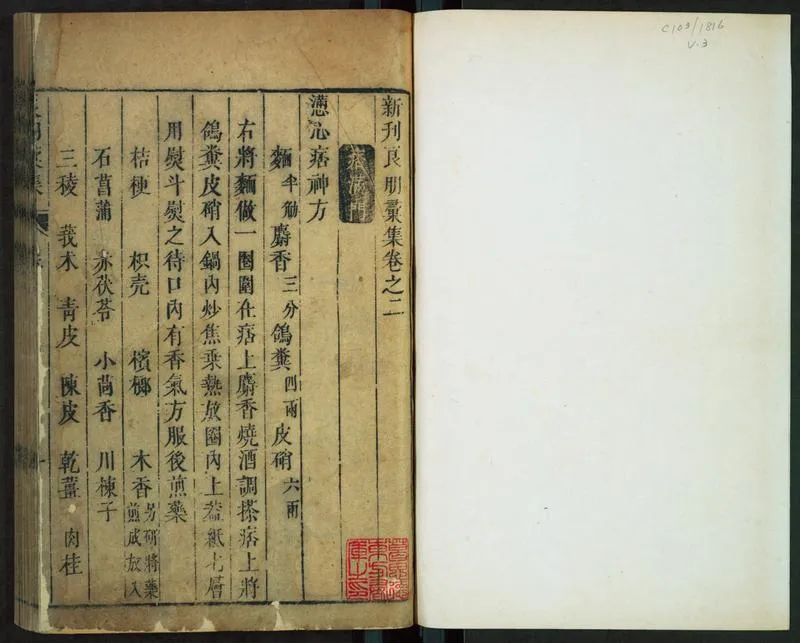 C103/1816
V.3
新刊良朋彙集卷之二
痞滿門
懣心痞神方
麵半觔麝香三分鴿糞四兩皮硝六兩
右將麵做一圈圍在痞上麝香燒酒調搽痞上將
鴿糞皮硝入鍋內炒焦乗熱放圈內上葢紙七層
用熨斗熨之待口內有香氣方服後煎藥
桔梗 枳壳 檳榔 木香另研將藥煎成放入
石菖蒲 赤茯苓 小茴香 川楝子
三稜 莪术 青皮 陳皮 乾薑 肉桂